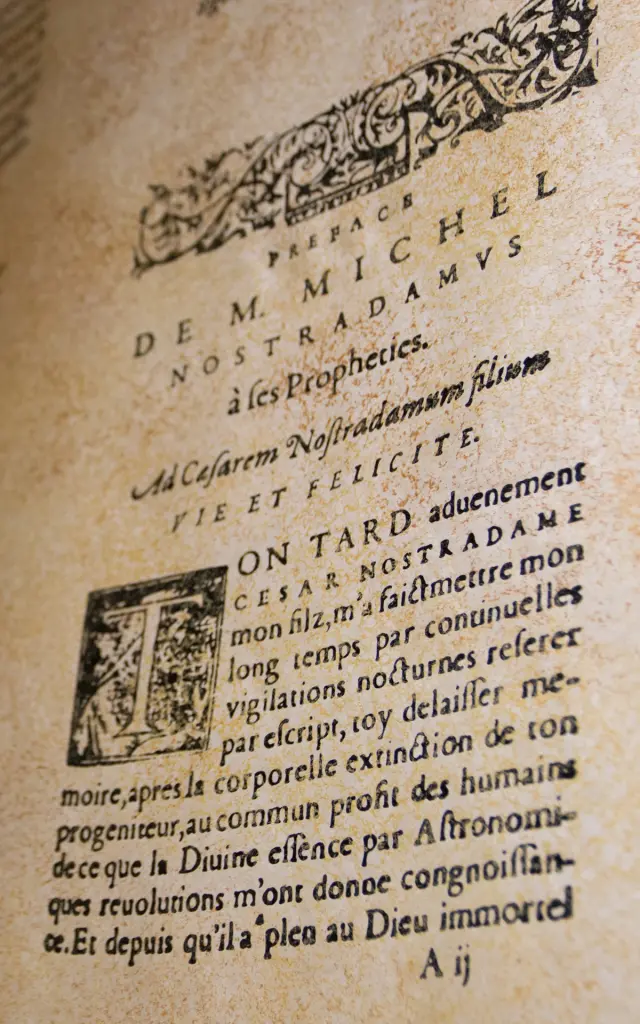 PREFACE
DE M. MICHEL
NOSTRADAMVS
à ſes Propheties.
Ad Ceſarem Noſtradamum filium
VIE ET FELICITE.
TON TARD aduenement
CESAR NOSTRADAME
mon filz, m'a faict mettre mon
long temps par continuelles
vigilations nocturnes referer
par eſcript, toy delaiſſer me-
moire, apres la corporelle extinction de ton
progeniteur, au commun profit des humains
de ce que la Diuine eſſence par Aſtronomi-
ques reuolutions m'ont donne congnoiſſan-
ce. Et depuis qu'il a pleu au Dieu immortel
A ij